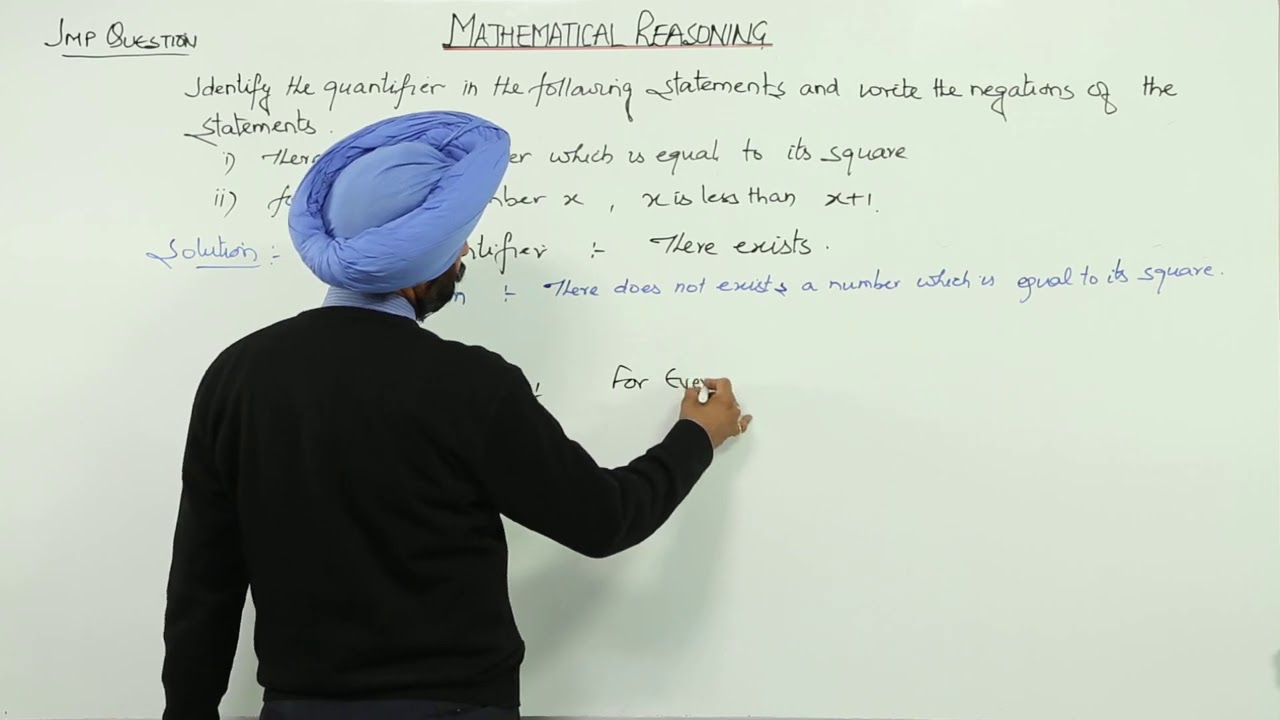 IMP QUESTION
MATHEMATICAL REASONING
Identify the quantifier in the following statements and write the negations of the
statements.
i) There which is equal to its square
ii) x , x is less than x+1.
Solution :- :- There exists.
:- There does not exists a number which is equal to its square.
For